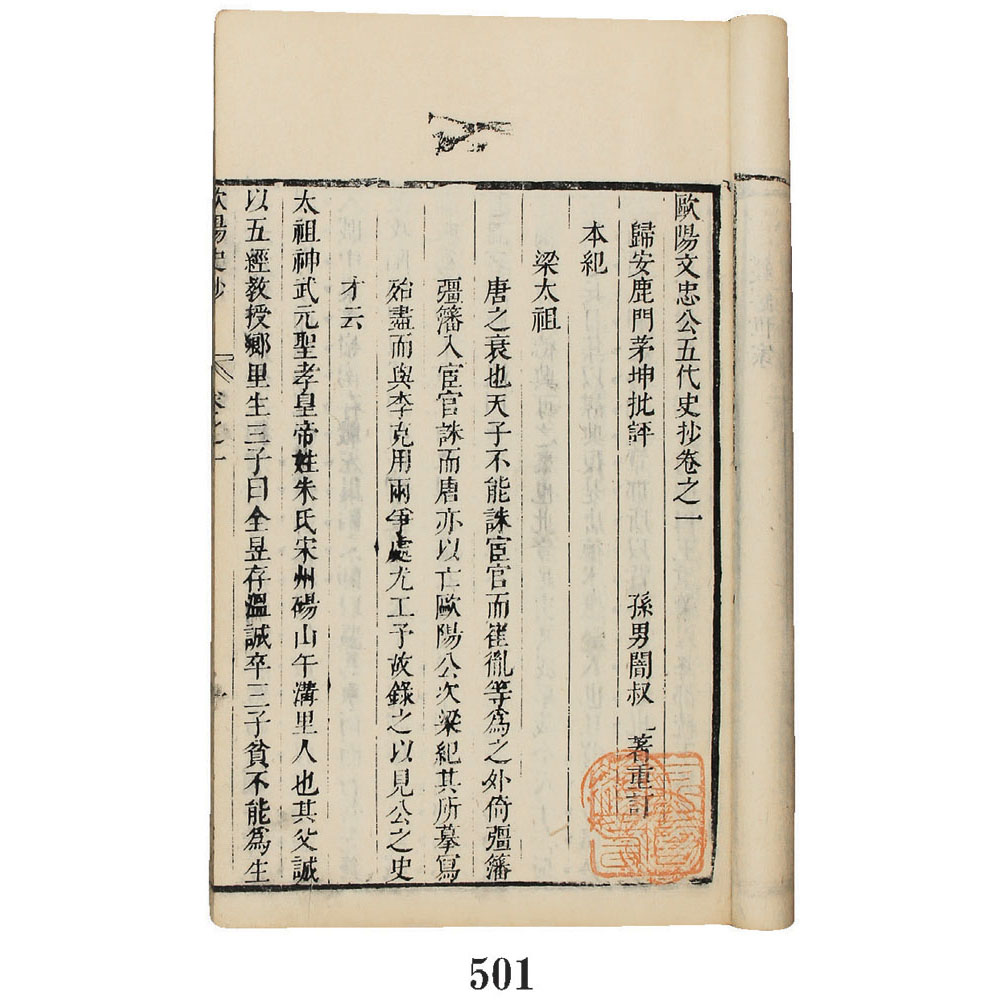 歐陽文忠公五代史抄卷之一
歸安鹿門茅坤批評 孫男闇叔著重訂
本紀
梁太祖
唐之衰也天子不能誅宦官而崔胤等為之外倚彊藩
彊藩入宦官誅而唐亦以亡歐陽公次梁紀其所摹寫
殆盡而與李克用兩爭處尤工予故錄之以見公之史
才云
太祖神武元聖孝皇帝姓朱氏宋州碭山午溝里人也其父誠
以五經教授鄉里生三子曰全昱存溫誠卒三子貧不能為生
歐陽史抄 卷之一
501